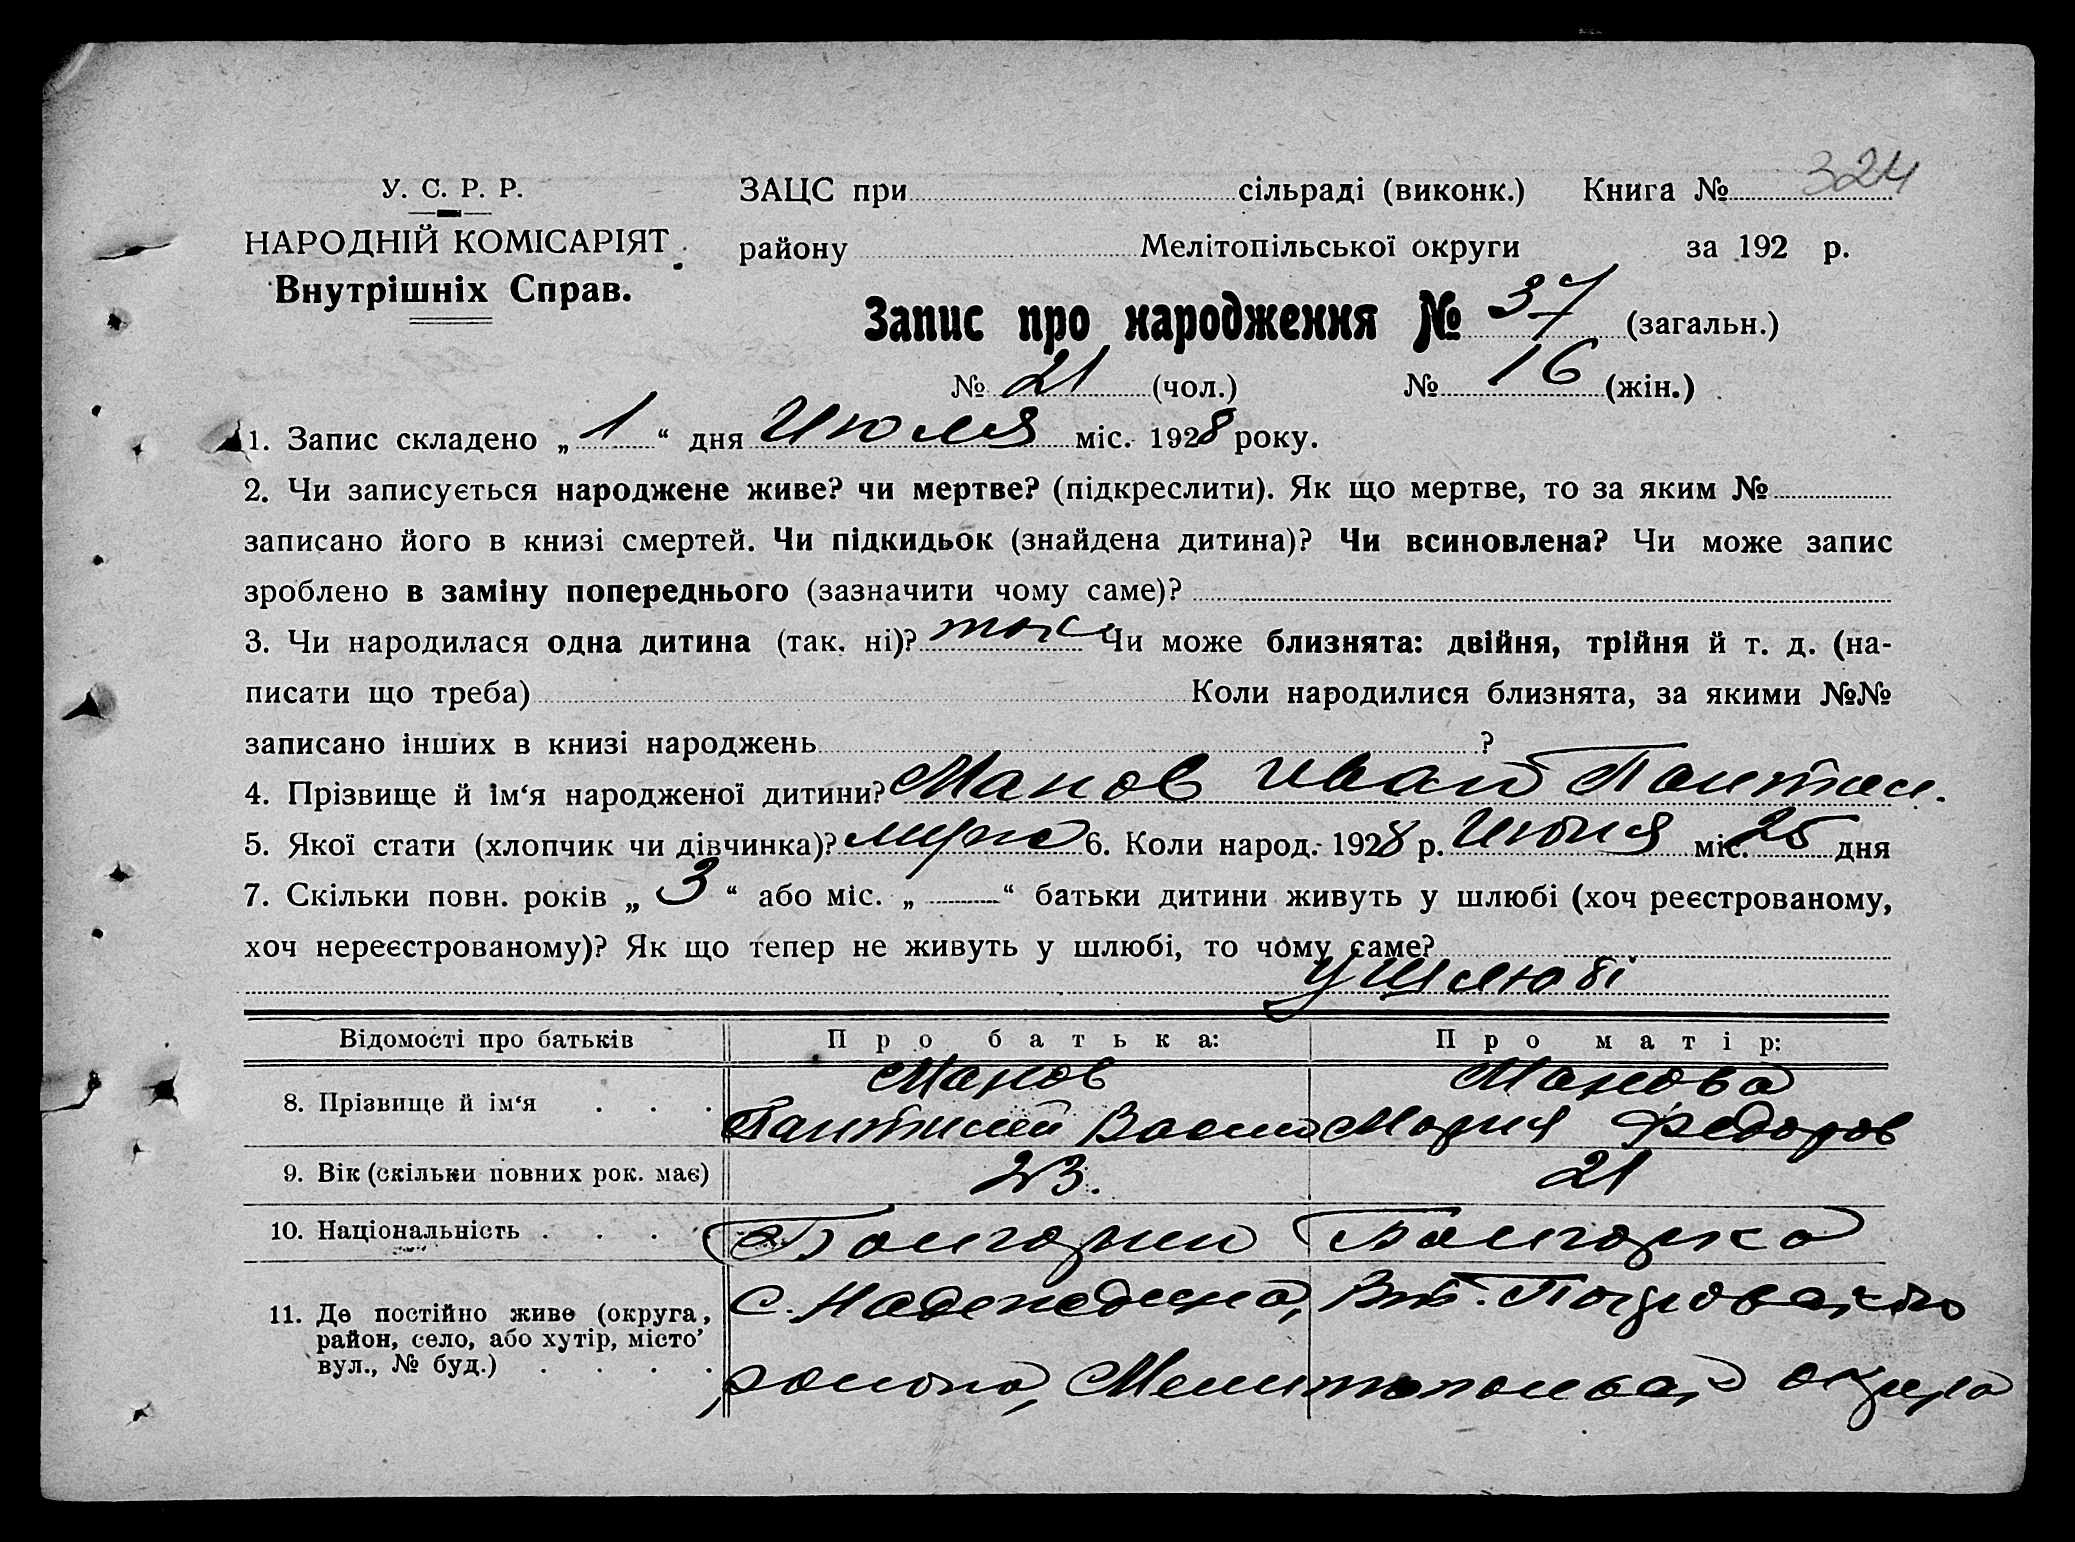 324
У. С. Р. Р. ЗАЦС при сільраді (виконк.) Книга №
НАРОДНІЙ КОМІСАРІЯТ району Мелітопільської округи за 192 р.
Внутрішніх Справ.
Запис про народження № 37 (загальн.)
№ 21 (чол.) № 16 (жін.)
1. Запис складено „ 1 “ дня Июля міс. 1928 року.
2. Чи записується народжене живе? чи мертве? (підкреслити). Як що мертве, то за яким №
записано його в книзі смертей. Чи підкидьок (знайдена дитина)? Чи всиновлена? Чи може запис
зроблено в заміну попереднього (зазначити чому саме)?
3. Чи народилася одна дитина (так, ні)? так Чи може близнята: двійня, трійня й т. д. (на-
писати що треба) Коли народилися близнята, за якими №№
записано інших в книзі народжень ?
4. Прізвище й ім‘я народженої дитини? Манов Иван Пантил.
5. Якої стати (хлопчик чи дівчинка)? 6. Коли народ. 1928 р. Июня міс. 25 дня
7. Скільки повн. років „ 3 “ або міс. „ “ батьки дитини живуть у шлюбі (хоч реєстрованому,
хоч нереєстрованому)? Як що тепер не живуть у шлюбі, то чому саме?
у шлюбі
Відомості про батьків Про батька: Про матір:
Манов Манова
8. Прізвище й ім‘я . . . Пантилей Васил Мария Федоров
9. Вік (скільки повних рок. має) 23. 21
10. Національність . . . . Болгарин Болгарка
11. Де постійно живе (округа, с. Надеждина,
район, село, або хутір, місто’
вул., № буд.) . . . . района, округа